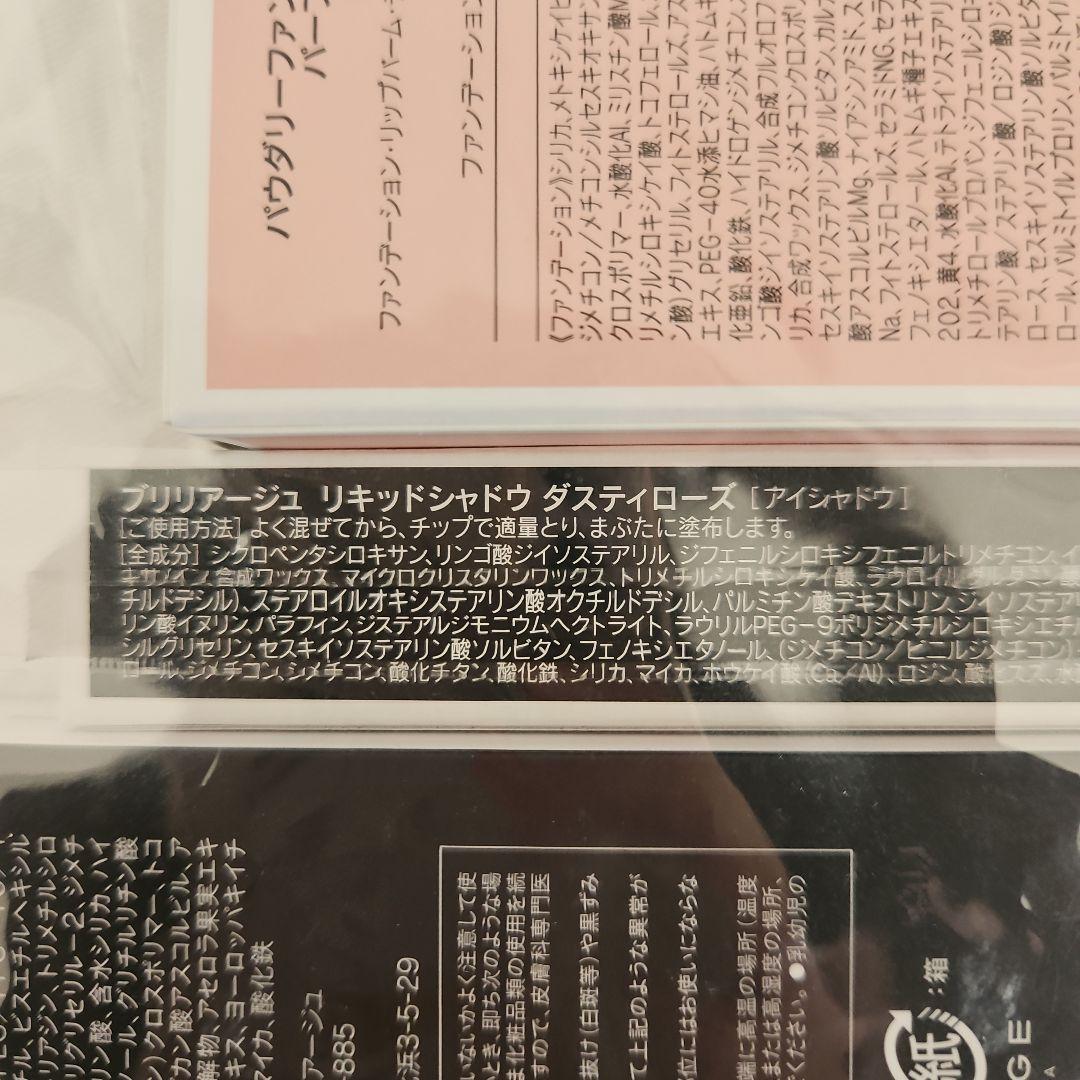 パウダリーファン
パー
ファンデーション・リップバーム・
ファンデーション
《ファンデーション》シリカ、メトキシケイヒ
ジメチコン/メチコンシルセスキオキサン
クロスポリマー、水酸化Al、ミリスチン酸M
リメチルシロキシケイ酸、トコフェロール、
ン酸)グリセリル、フィトステロールズ、アス
エキス、PEG-40水添ヒマシ油、ハトムギ
化亜鉛、酸化鉄、ハイドロゲンジメチコン、
ンゴ酸ジイソステアリル、合成フルオロフ
リカ、合成ワックス、ジメチコンクロスポリ
セスキイソステアリン酸ソルビタン、カルナ
酸アスコルビルMg、ナイアシンアミド、ス
Na、フィトステロールズ、セラミドNG、セラ
フェノキシエタノール、ハトムギ種子エキス
202、黄4、水酸化Al、テトライソステアリ
トリメチロールプロパン、ジフェニルシロキ
テアリン酸/ステアリン酸/ロジン酸)ジ
ロース、セスキイソステアリン酸ソルビタ
ロール、パルミトイルプロリン、パルミトイル
ブリリアージュ リキッドシャドウ ダスティローズ [アイシャドウ]
[ご使用方法] よく混ぜてから、チップで適量とり、まぶたに塗布します。
[全成分] シクロペンタシロキサン、リンゴ酸ジイソステアリル、ジフェニルシロキシフェニルトリメチコン、イ
キサノイン、合成ワックス、マイクロクリスタリンワックス、トリメチルシロキシケイ酸、ラウロイルグルタミン酸
チルドデシル)、ステアロイルオキシステアリン酸オクチルドデシル、パルミチン酸デキストリン、ジイソステア
リン酸イヌリン、パラフィン、ジステアルジモニウムヘクトライト、ラウリルPEG-9ポリジメチルシロキシエチ
ンルグリセリン、セスキイソステアリン酸ソルビタン、フェノキシエタノール、(ジメチコン/ビニルジメチコン)
ロール、ジメチコン、シメチコン、酸化チタン、酸化鉄、シリカ、マイカ、ホウケイ酸(Ca/Al)、ロジン、酸化スズ、水
チル、ビスエチルヘキシル
リアジン、トリメチルシロ
リグリセリル-2、ジメチ
リン酸、含水シリカ、ハイ
ノール、グリチルリチン酸
ン)クロスポリマー、トコ
カン酸アスコルビル、ア
解物、アセロラ果実エキ
キス、ヨーロッパキイチ
マイカ、酸化鉄
アージュ
-885
浜3-5-29
いないかよく注意して使
とき、即ち次のような場
ま化粧品類の使用を続
すので、皮膚科専門医
抜け(白斑等)や黒ずみ
て上記のような異常が
位にはお使いにならな
端に高温の場所(温度
または高湿度の場所、
でください。●乳幼児の
紙:箱
GE